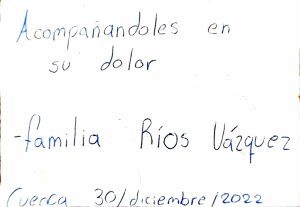 Acompañandoles en
su dolor
-familia Ríos Vázquez
Cuenca 30/diciembre/2022